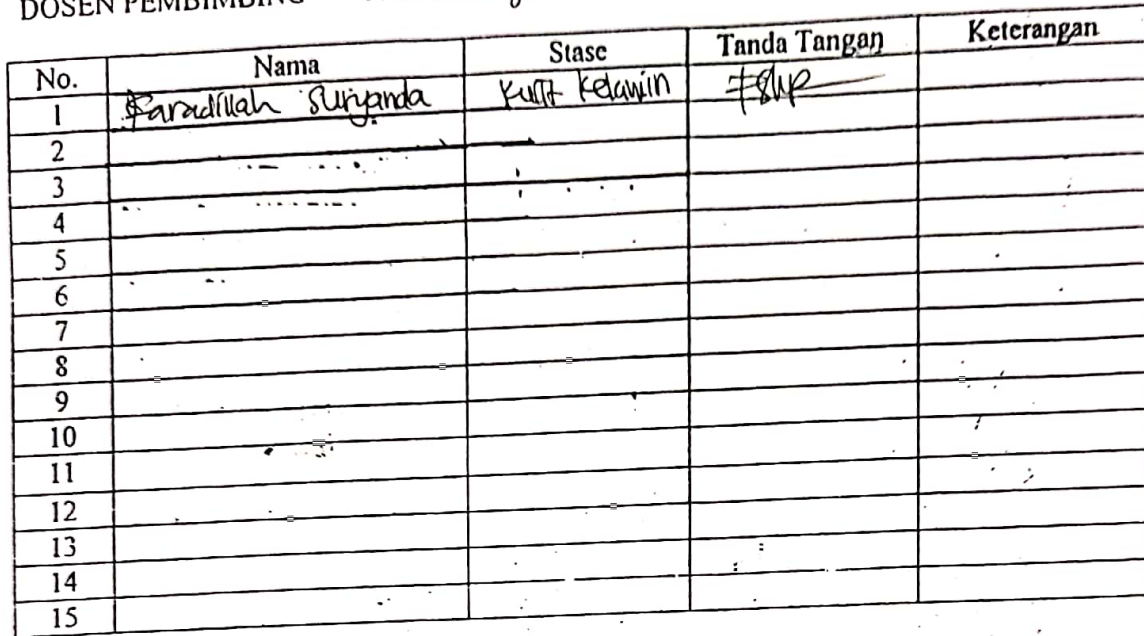 DOSEN PEMBIMBING
No. Nama Stase Tanda Tangan Keterangan
1 Faradillah Suryanda Kulit Kelamin
2
3
4
5
6
7
8
9
10
11
12
13
14
15